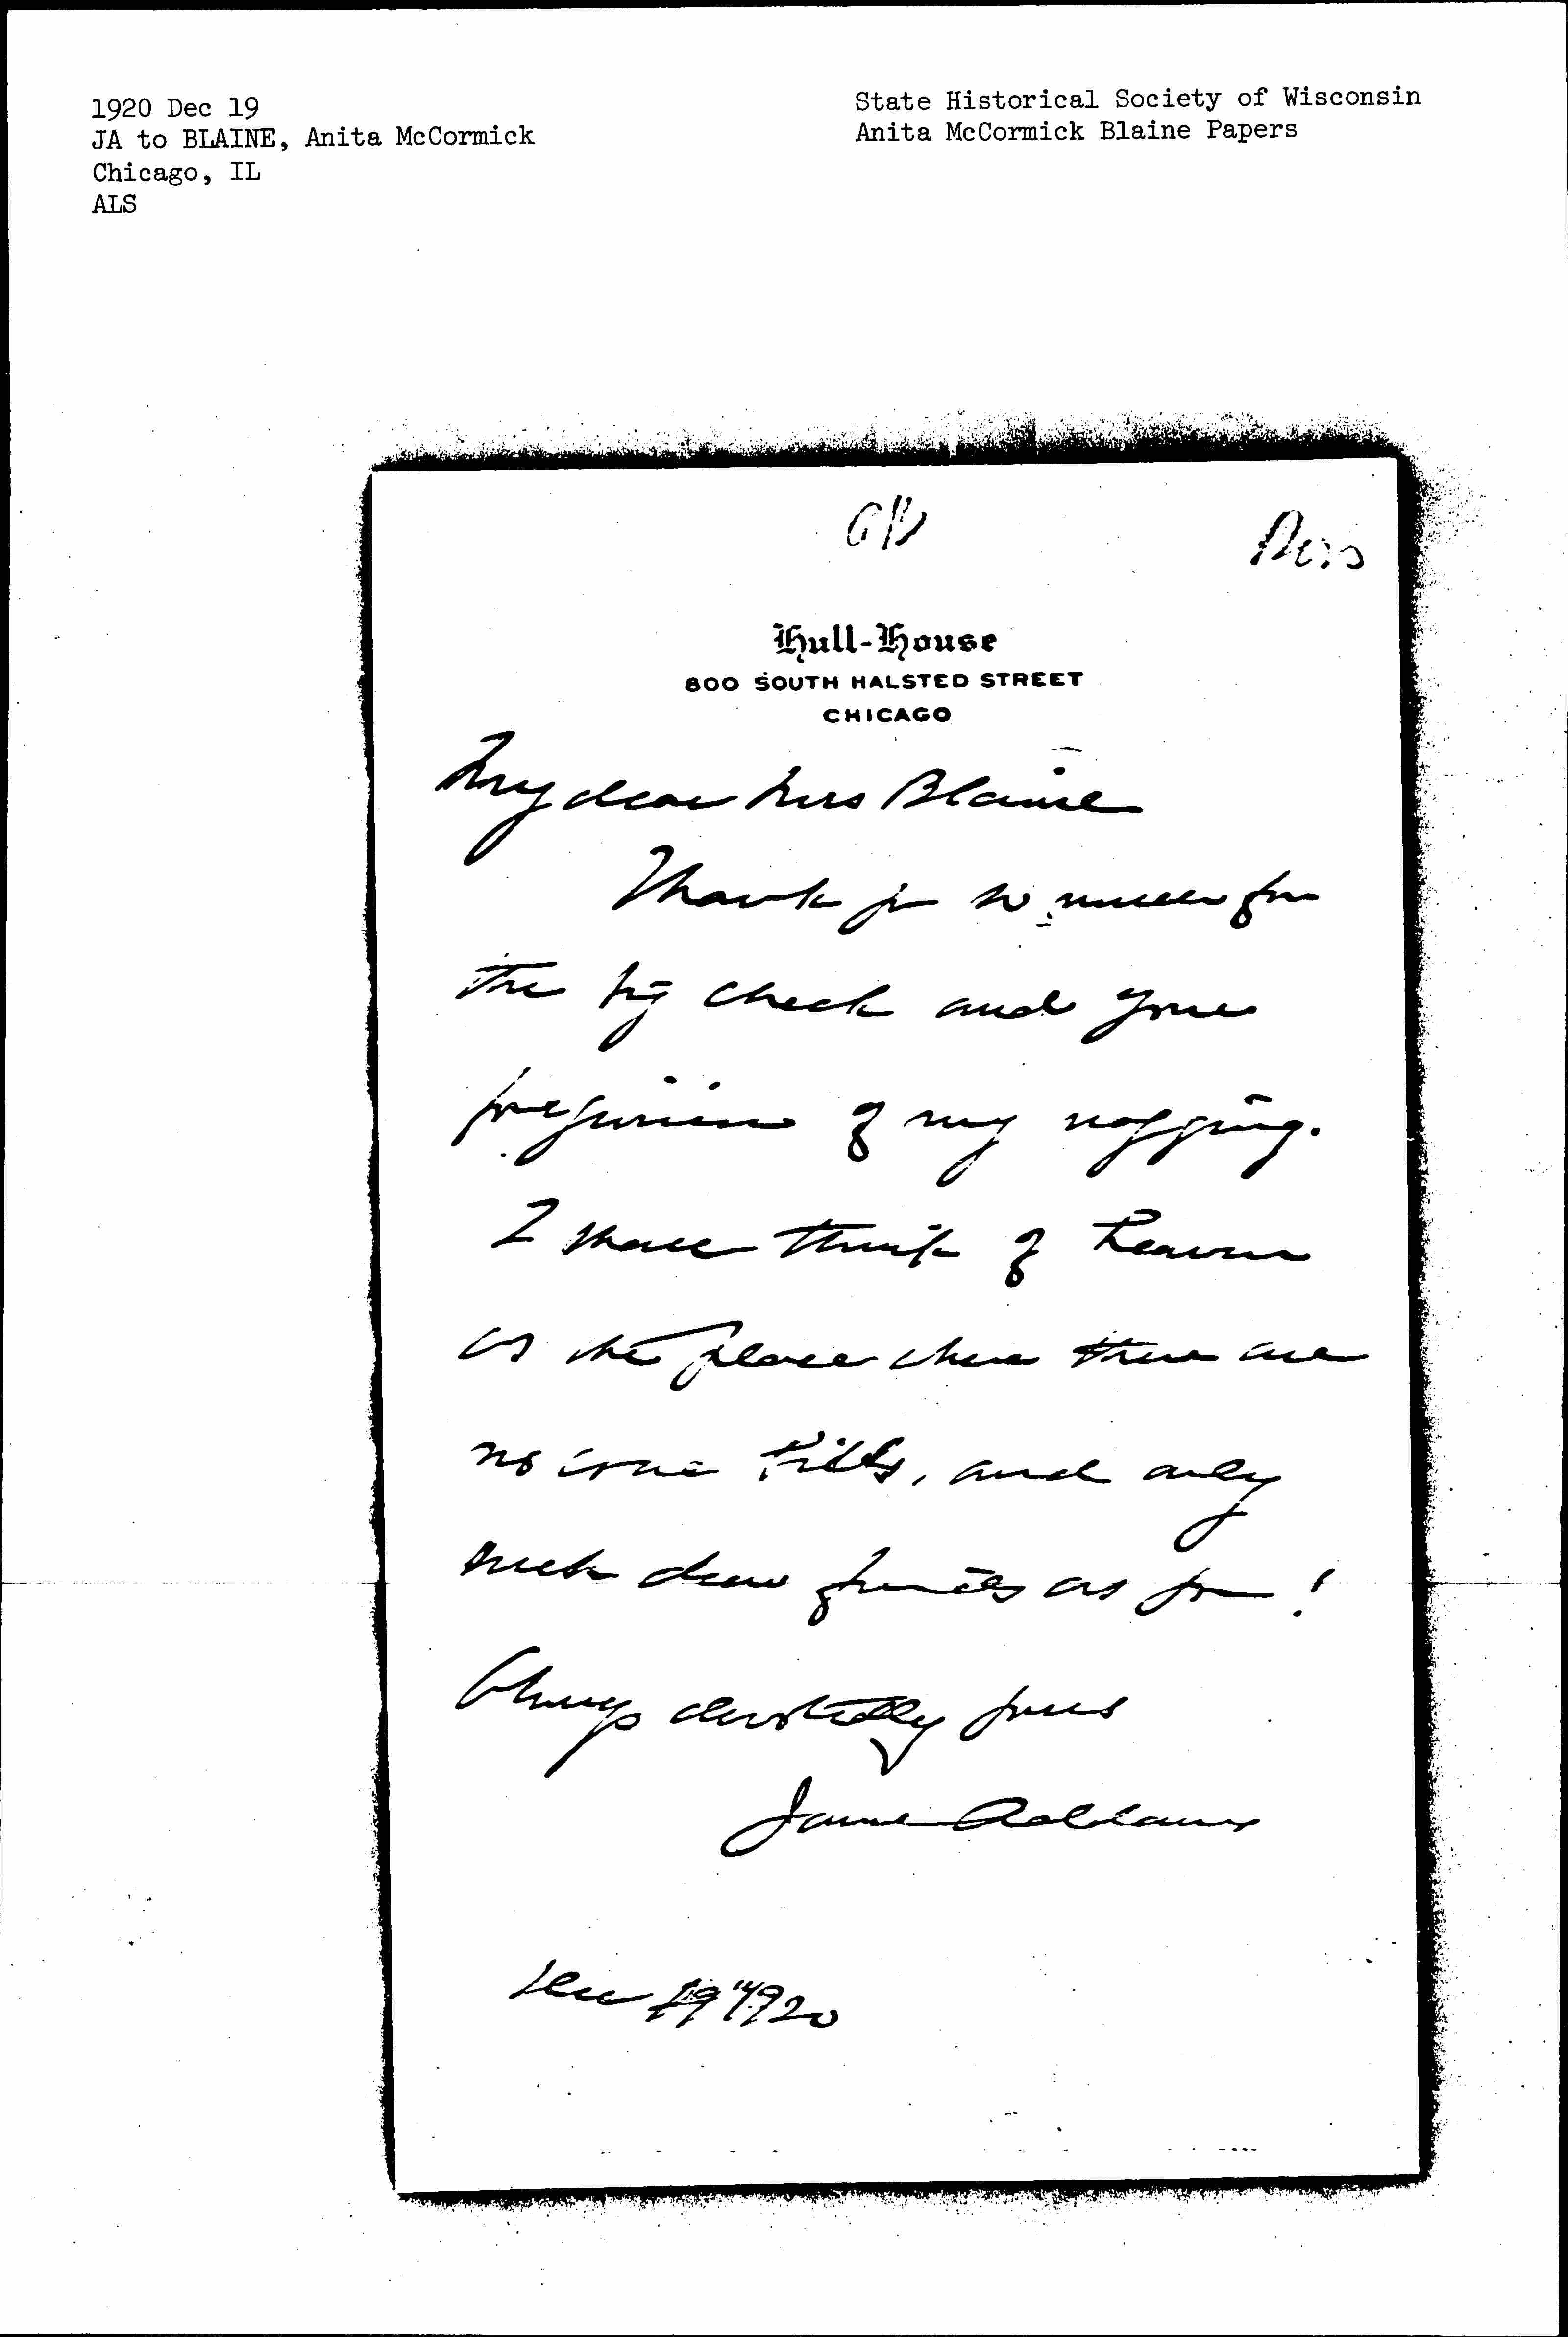 1920 Dec 19
JA to BLAINE, Anita McCormick
Chicago, IL
ALS
State Historical Society of Wisconsin
Anita McCormick Blaine Papers
Hull-House
800 SOUTH HALSTED STREET
CHICAGO
My dear Mrs Blaine
Thank you so much for
the big check and your
forgiveness of my nagging.
I shall think of Heaven
as the place where there are
no coal bills, and only
such dear friends as you!
Always devotedly yours
Jane Addams
Dec 19" 1920